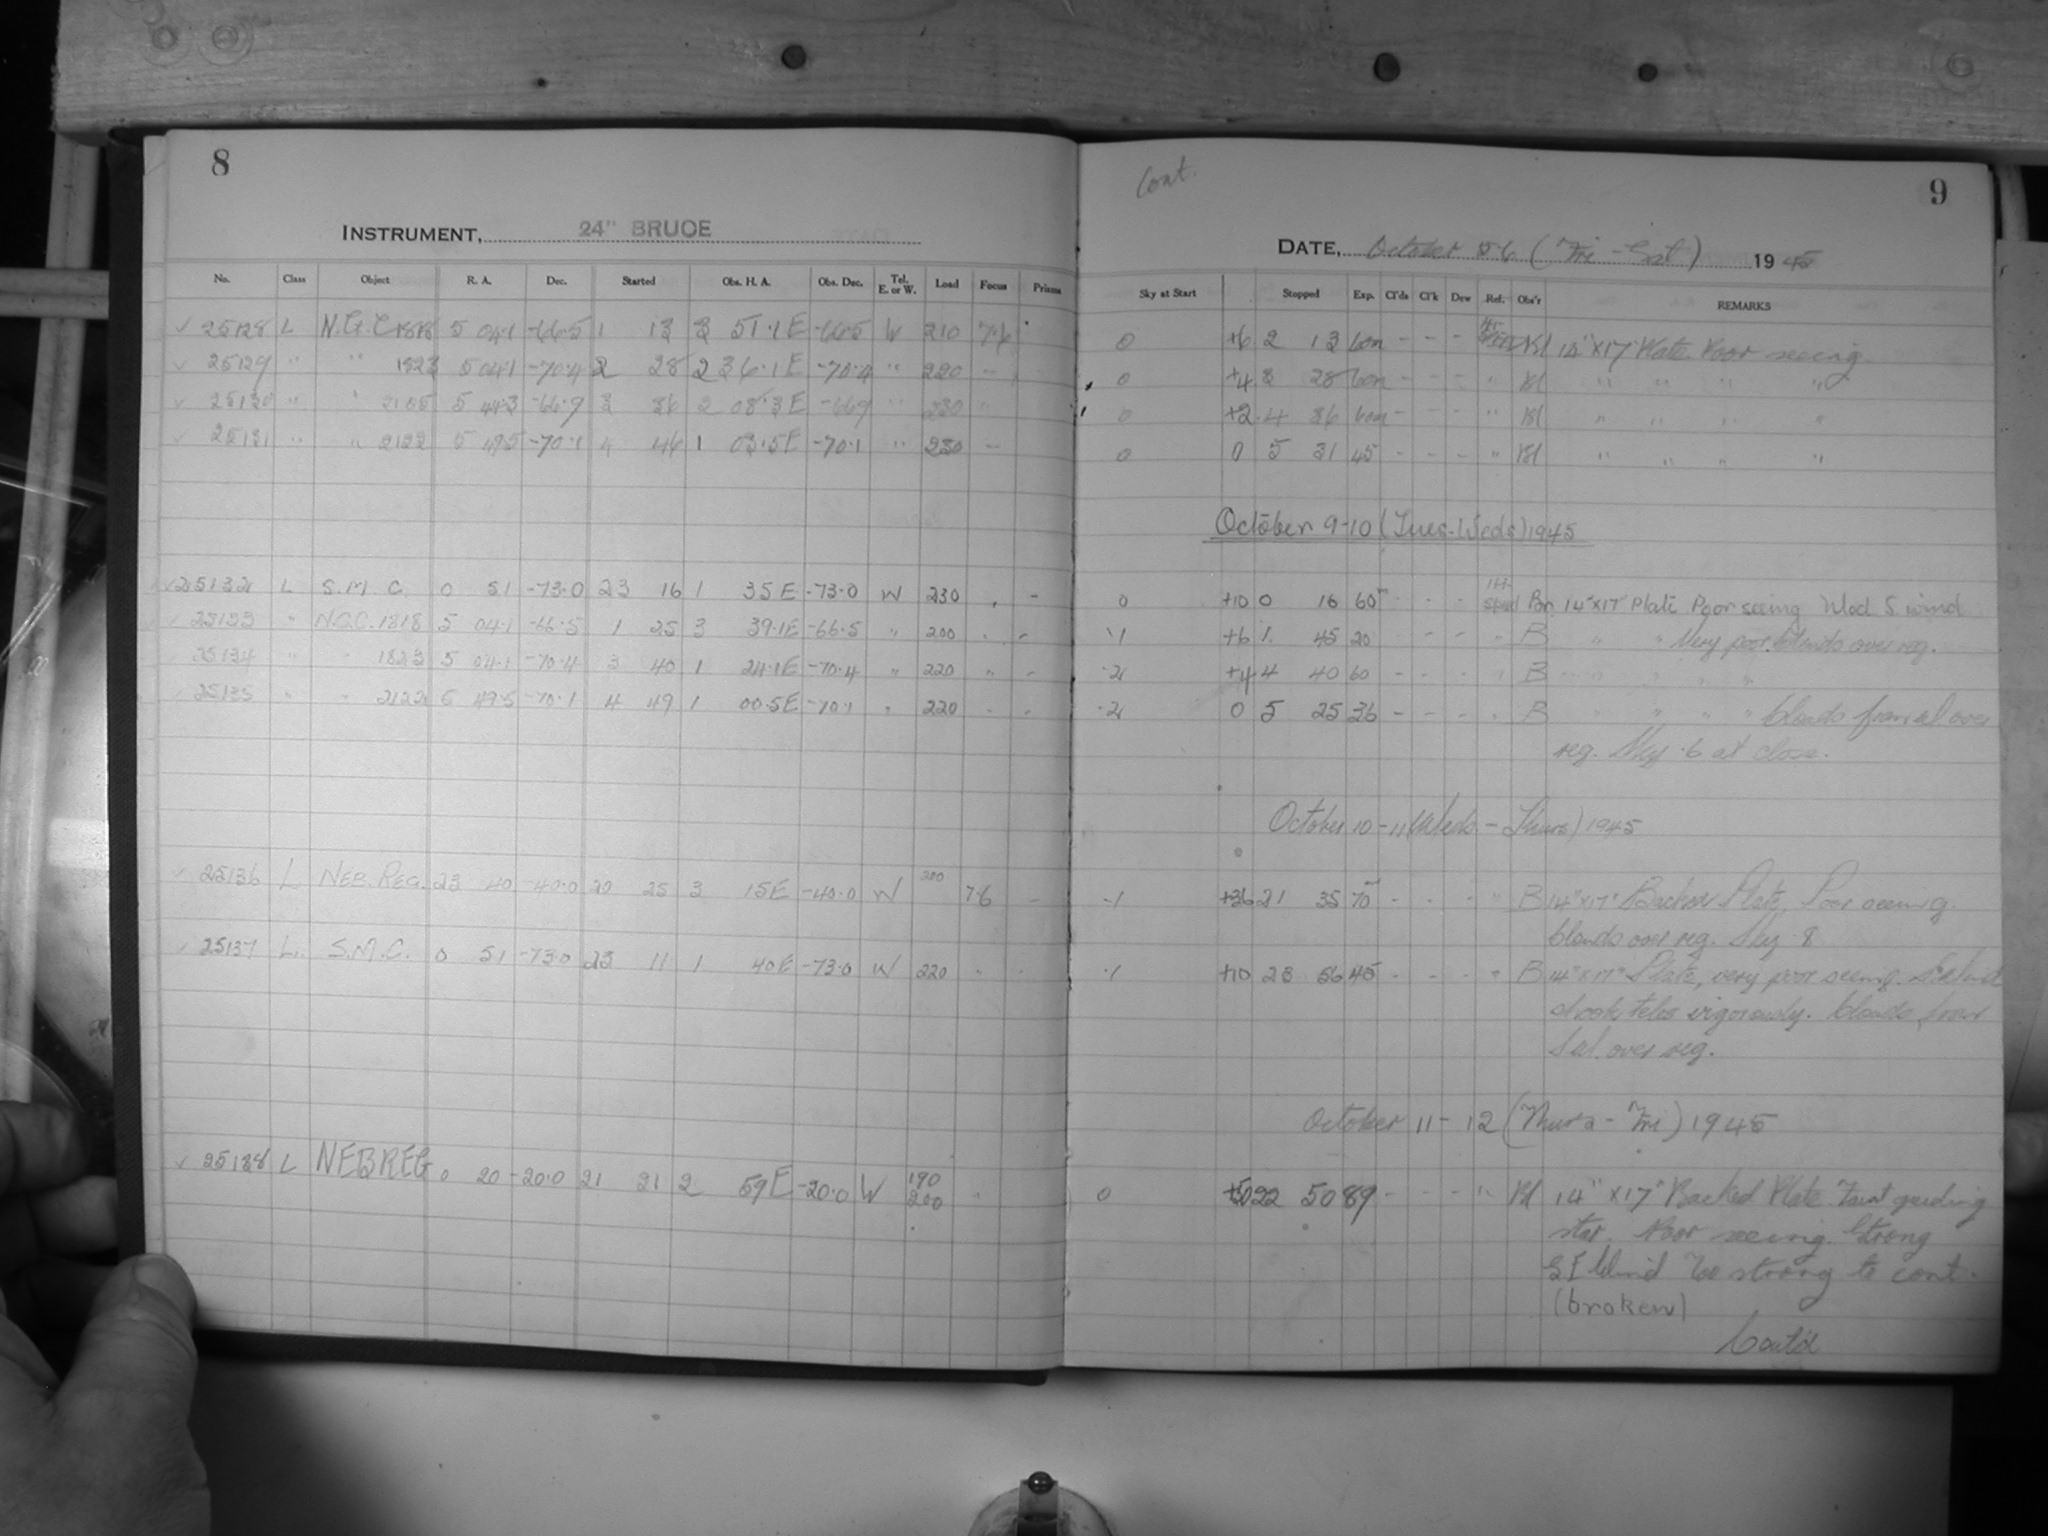 8
INSTRUMENT, 24" BRUCE
No. Class Object R. A. Dec. Started Obs. H. A. Obs. Dec. Tel. E. or W. Load Focus Prisms
25128 L N.G.C 1818 5 04.1 -66.5 1 13 3 51.1E -66.5 W 210 7.6
25129 " " 1823 5 04.1 -70.4 2 28 2 36.1E -70.4 " 220 "
25130 " " 2105 5 44.3 -66.9 3 36 2 08.3E -66.9 " 230 "
25131 " " 2122 5 49.5 -70.1 4 46 1 03.5E -70.1 " 230 "
25132 L S.M.C. 0 51 -73.0 23 16 1 35E -73.0 W 230 -
25133 " N.G.C. 1818 5 04.1 -66.5 1 25 3 39.1E -66.5 " 200
25134 " " 1823 5 04.1 -70.4 3 40 1 24.1E -70.4 " 220 "
25135 " " 2122 5 49.5 -70.1 4 49 1 00.5E -70.1 " 220
25136 L NEB. REG. 23 40 -40.0 20 25 3 15E -40.0 W 200 7.6 -
25137 L. S.M.C. 0 51 -73.0 23 11 1 40E -73.0 W 220 "
25138 L NEB REG 0 20 -20.0 21 21 2 59E -20.0 W 190 "
200
Cont.
9
DATE, October 5-6 (Fri - Sat) 1945
Sky at Start Stopped Exp. Cl'ds Cl'k Dew Ref. Obs'r REMARKS
0 +6 2 13 60m - - - Bl 14" x 17" Plate Poor seeing
0 +4 3 28 60m - - - " Bl " " " "
0 +2 4 36 60m - - - " Bl " " " "
0 0 5 31 45 - - - " Bl " " " "
October 9-10 (Tues-Weds) 1945
0 +10 0 16 60 - - - Br 14" x 17" Plate Poor seeing Mod S. wind
.1 +6 1 45 20 - - - " B " " Very poor. Clouds over reg.
.2 +4 4 40 60 - - - " B " " " "
.2 0 5 25 36 - - - " B " " " " Clouds from over
reg. Sky .6 at close.
October 10-11 (Weds - Thurs) 1945
.1 +36 21 35 70 - - - " B 14" x 17" Plate, Poor seeing.
Clouds over reg. Sky .8
.1 +10 23 56 45 - - - " B 14" x 17" Plate, very poor seeing.
shook teles vigorously. Clouds from
over reg.
October 11-12 (Thurs - Fri) 1945
0 22 50 89 - - - " Bl 14" x 17" Backed Plate. Faint guiding
star. Poor seeing. Strong
SE Wind Too strong to cont.
(broken)
Cont'd